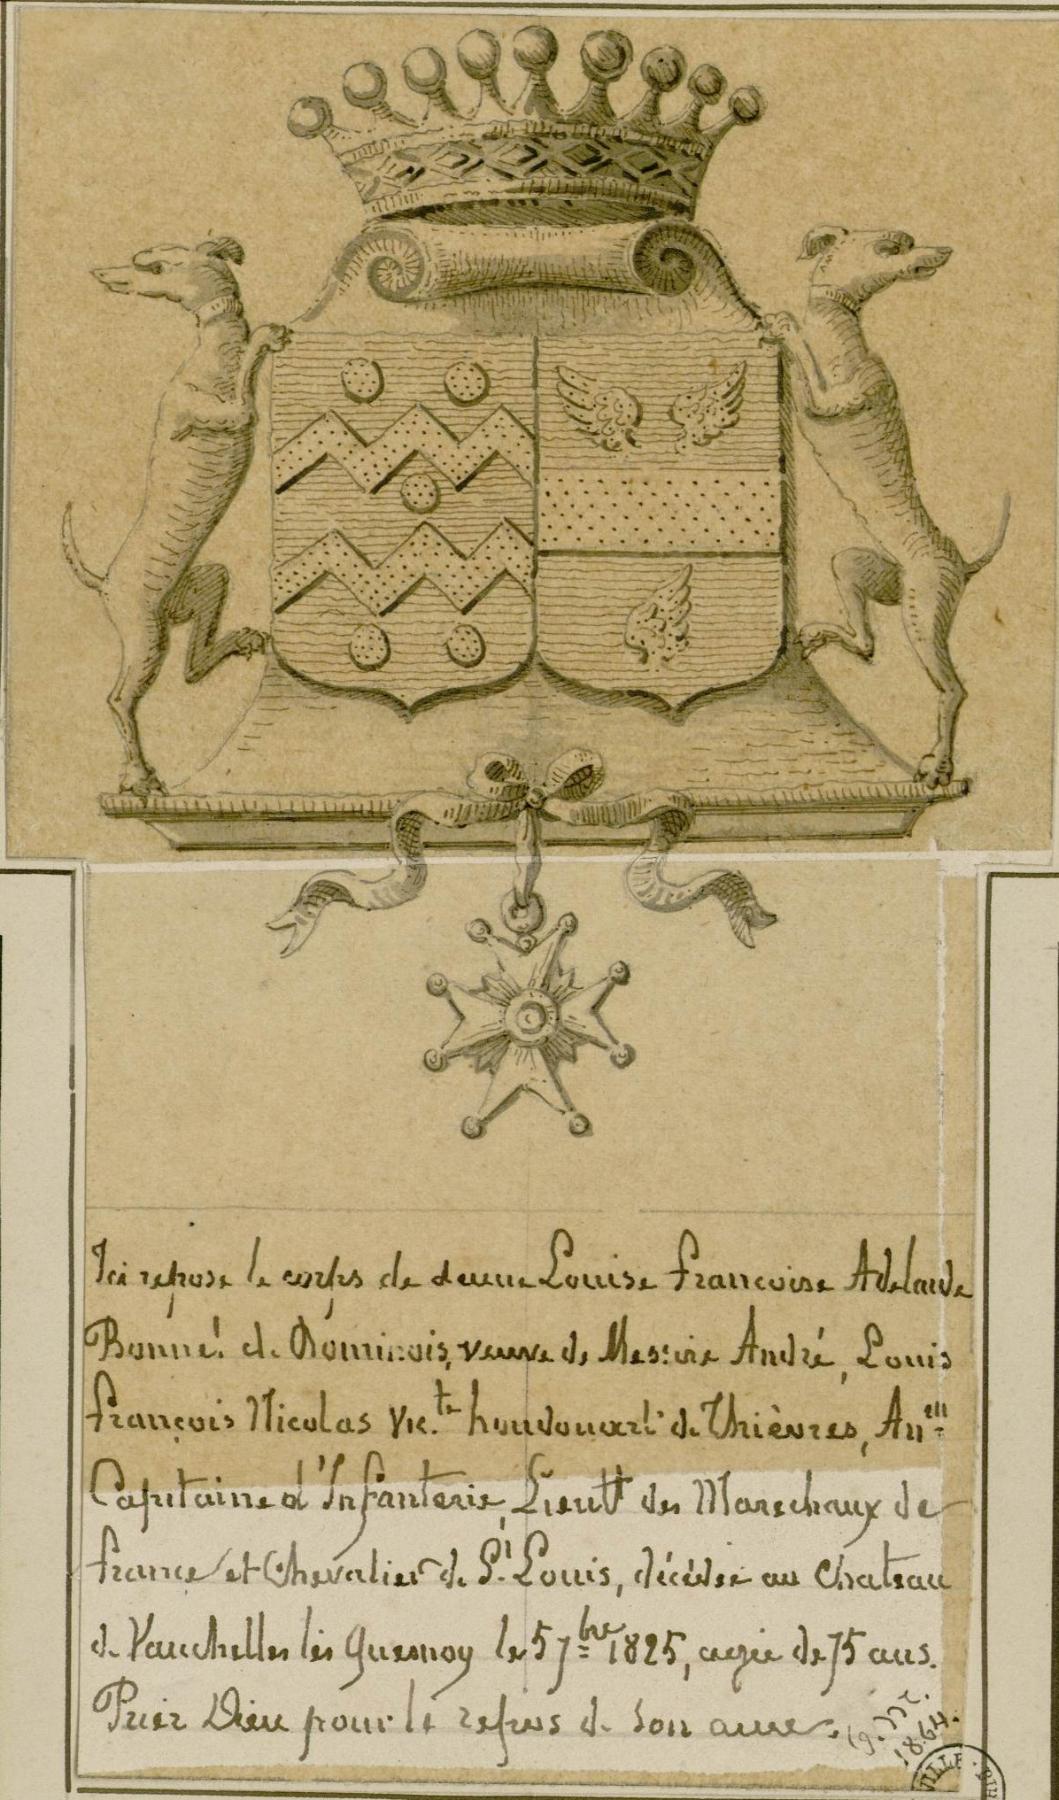 Ici repose le corps de dame Louise françoise Adelaide
Bonné! de Dominois, veuve de Messire André, Louis
françois Nicolas Vic.te houdouart de Thièvres, An.en
Capitaine d'Infanterie, Lieutt des Marechaux de
france et Chevalier de St. Louis, décédée au Chateau
de Vauchelles les Quesnoy le 5 7bre 1825, agée de 75 ans.
Prier Dieu pour le repos de son ame.
1864.
VILLE